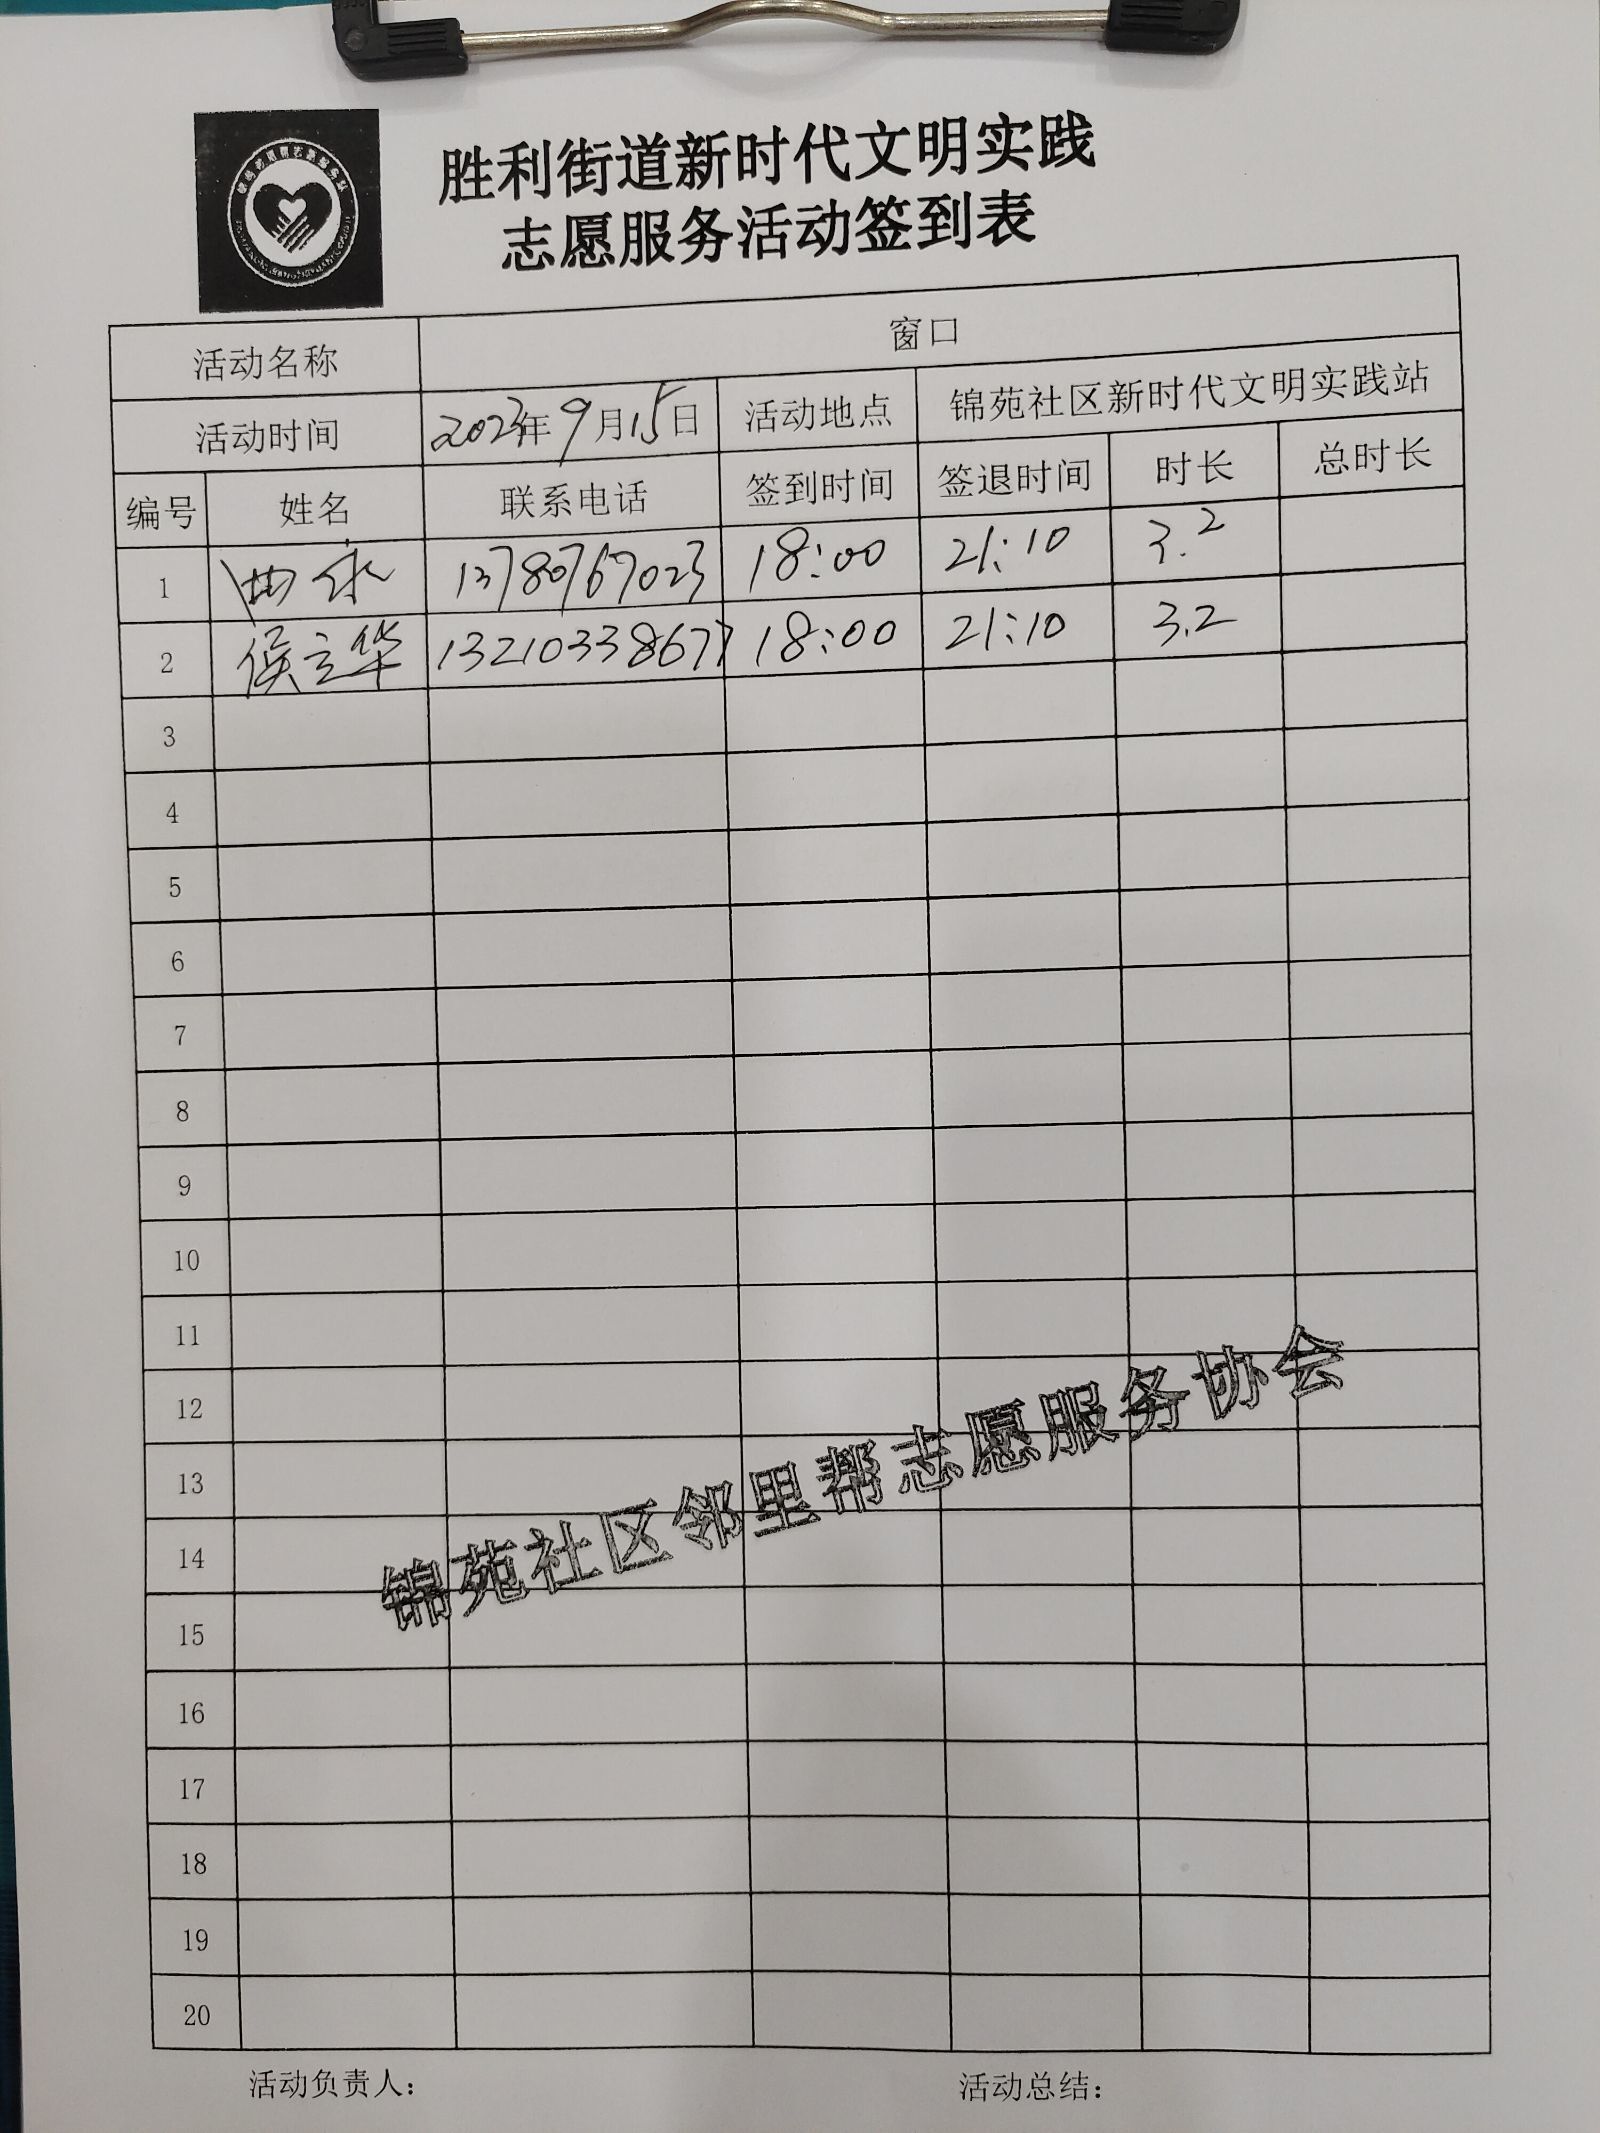 胜利街道新时代文明实践
志愿服务活动签到表
活动名称 窗口
活动时间 2023年9月15日 活动地点 锦苑社区新时代文明实践站
编号 姓名 联系电话 签到时间 签退时间 时长 总时长
1 曲永 13780767023 18:00 21:10 3.2
2 侯立华 13210338677 18:00 21:10 3.2
3
4
5
6
7
8
9
10
11
12
13
14
15
16
17
18
19
20
锦苑社区邻里帮志愿服务协会
活动负责人: 活动总结: